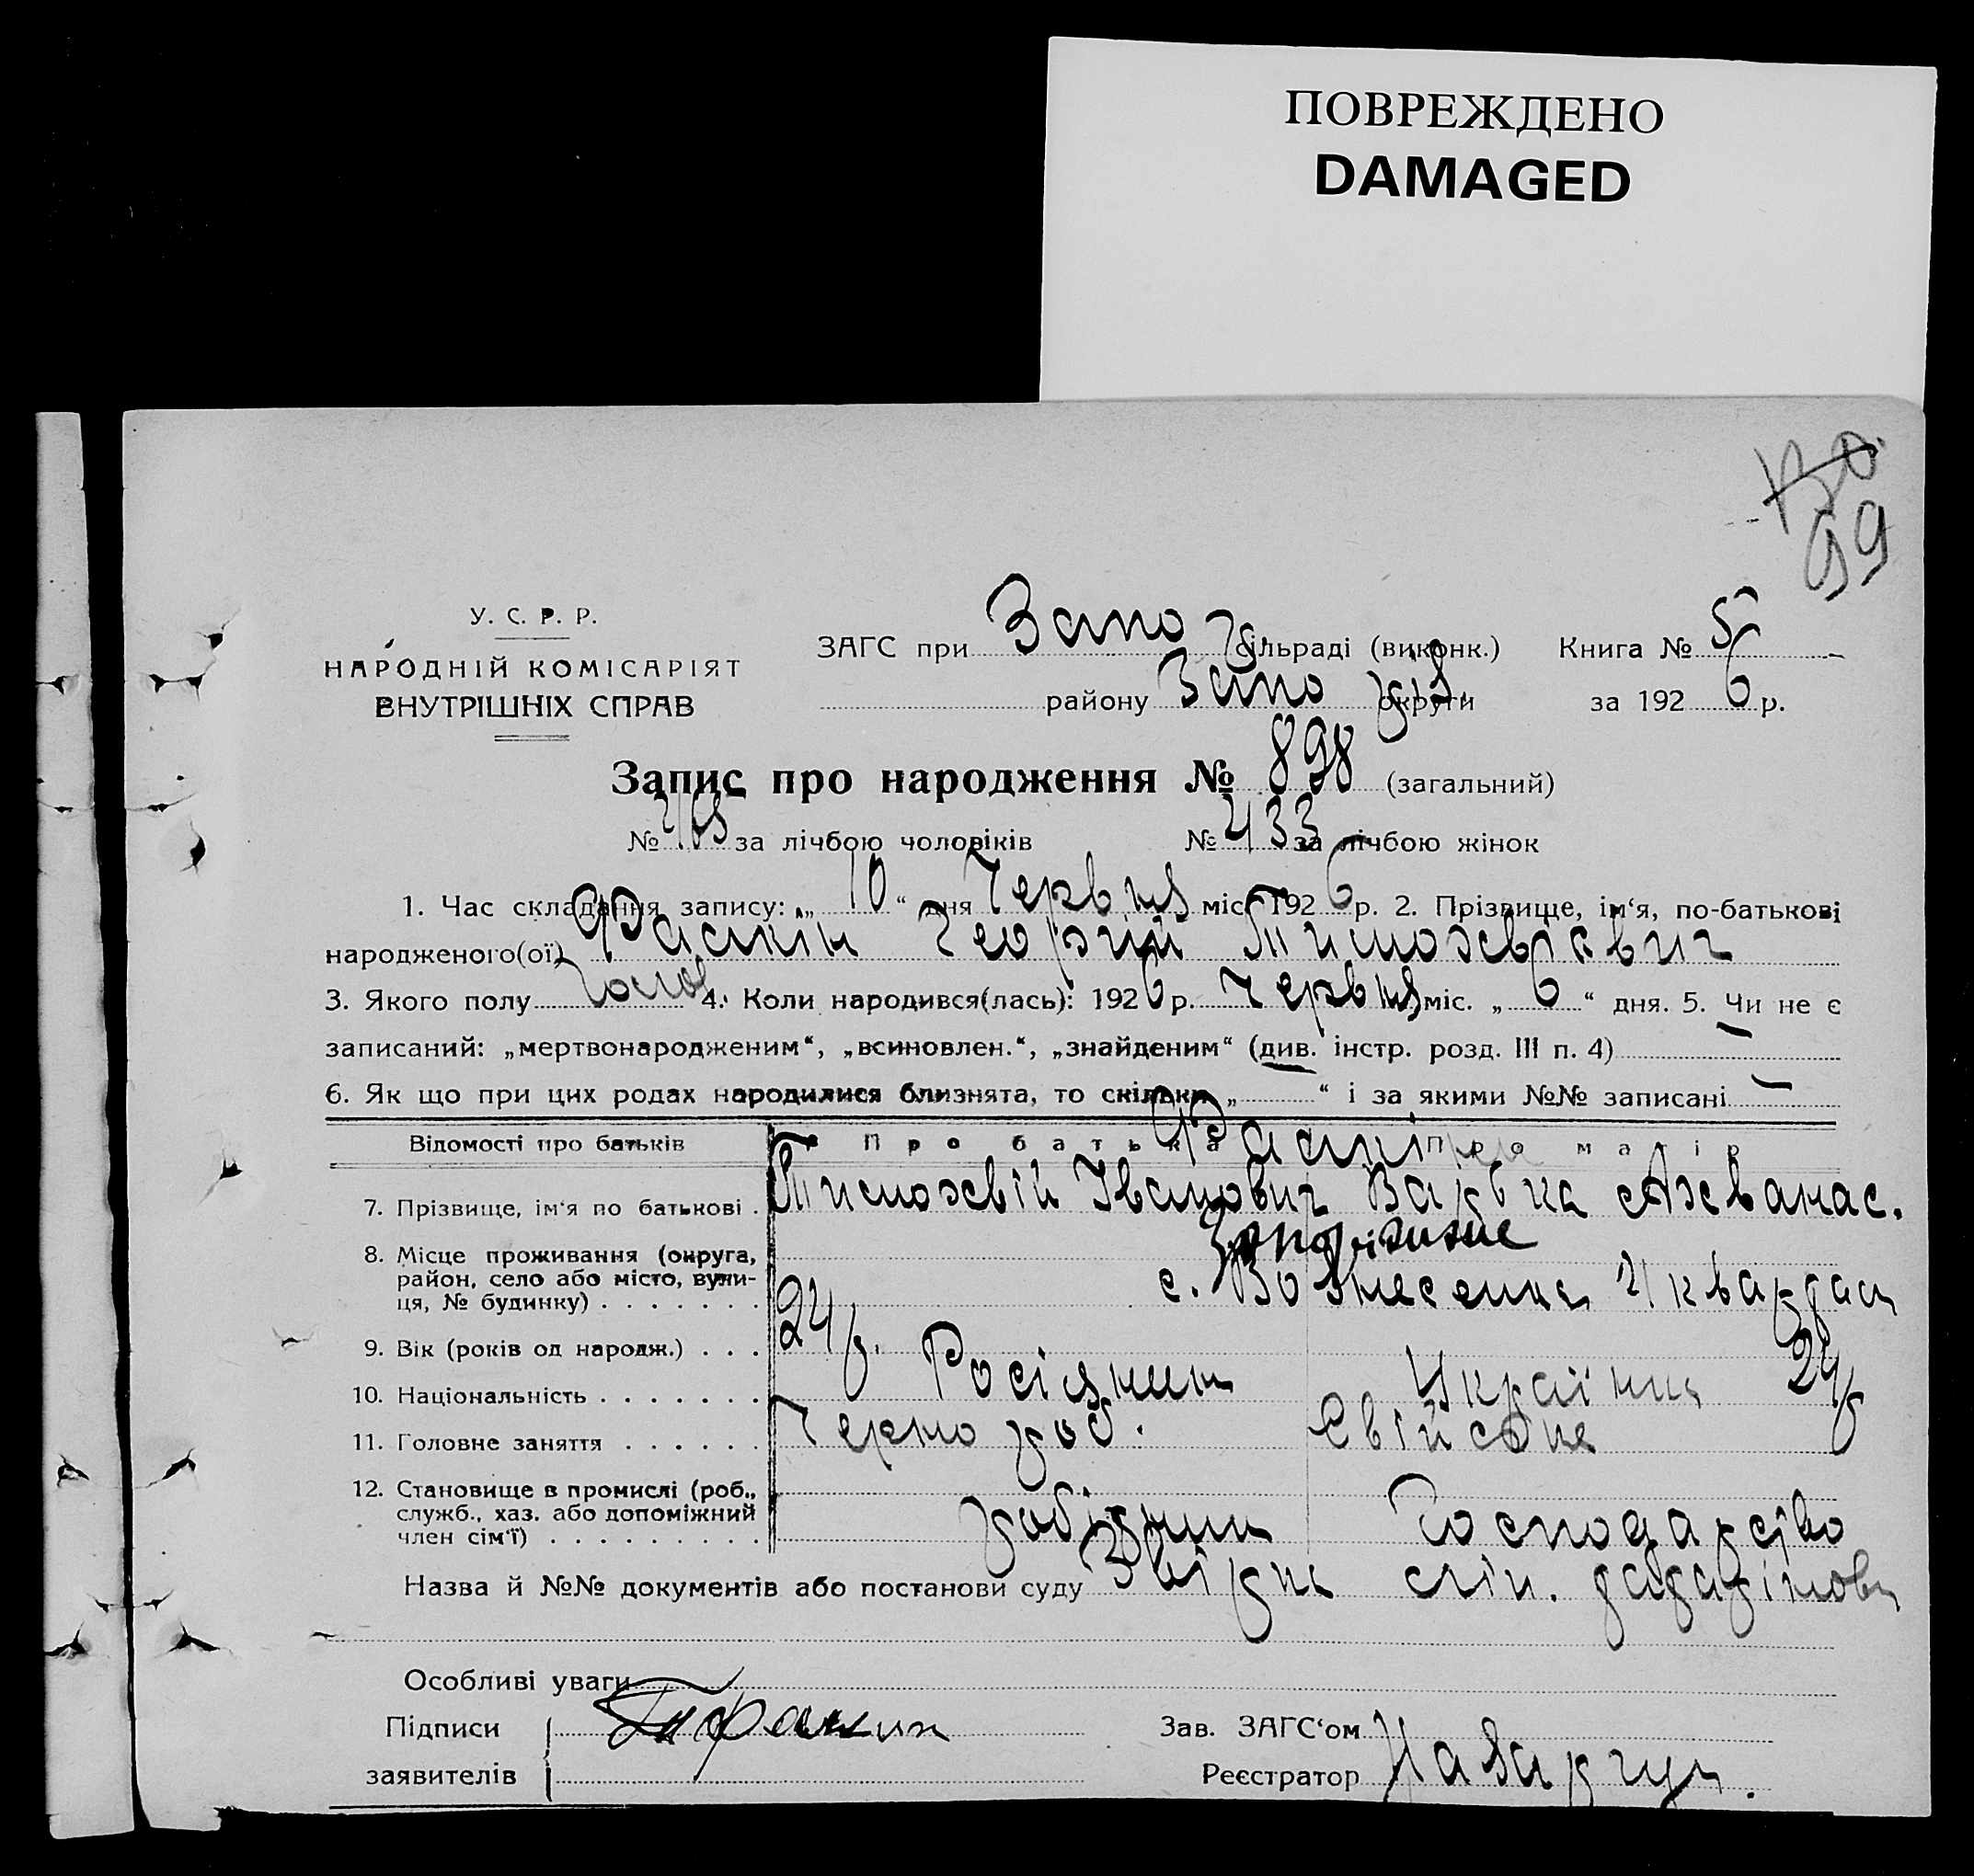 ПОВРЕЖДЕНО
DAMAGED
99
У. С. Р. Р.
НАРОДНІЙ КОМІСАРІЯТ
ВНУТРІШНІХ СПРАВ
ЗАГС при Запо сільраді (виконк.) Книга № 5
району Запоріз. округи за 1926 р.
Запис про народження № 898 (загальний)
№ 465 за лічбою чоловіків № 433 за лічбою жінок
1. Час складання запису: „10“ дня Червня міс. 1926 р. 2. Прізвище, ім‘я, по-батькові
народженого(ої) Фаскін Георгій Тимофєвієвич
3. Якого полу чолов 4. Коли народився(лась): 1926 р. Червня міс. „6“ дня. 5. Чи не є
записаний: „мертвонародженим“, „всиновлен.“, „знайденим“ (див. інстр. розд. III п. 4) —
6. Як що при цих родах народилися близнята, то скільки „—“ і за якими №№ записані —
Відомості про батьків Про батька Про матір
Фаскіни
7. Прізвище, ім‘я по батькові . Тимофєвій Іванович Варвка Афванас.
8. Місце проживання (округа, район, село або місто, вули- ця, № будинку) . . . . . . . Запоріжжє
с. Вознесенка 4 квартал
9. Вік (років од народж.) . . . 24 р. 24 р
10. Національність . . . . . . . Росіянин Україниц
11. Головне заняття . . . . . . Чернороб. Свійське
12. Становище в промислі (роб., служб., хаз. або допоміжний член сім‘ї) . . . . . . . . . робітник Господарство
Назва й №№ документів або постанови суду
Особливі уваги
Підписи
заявителів
Зав. ЗАГС‘ом
Реєстратор